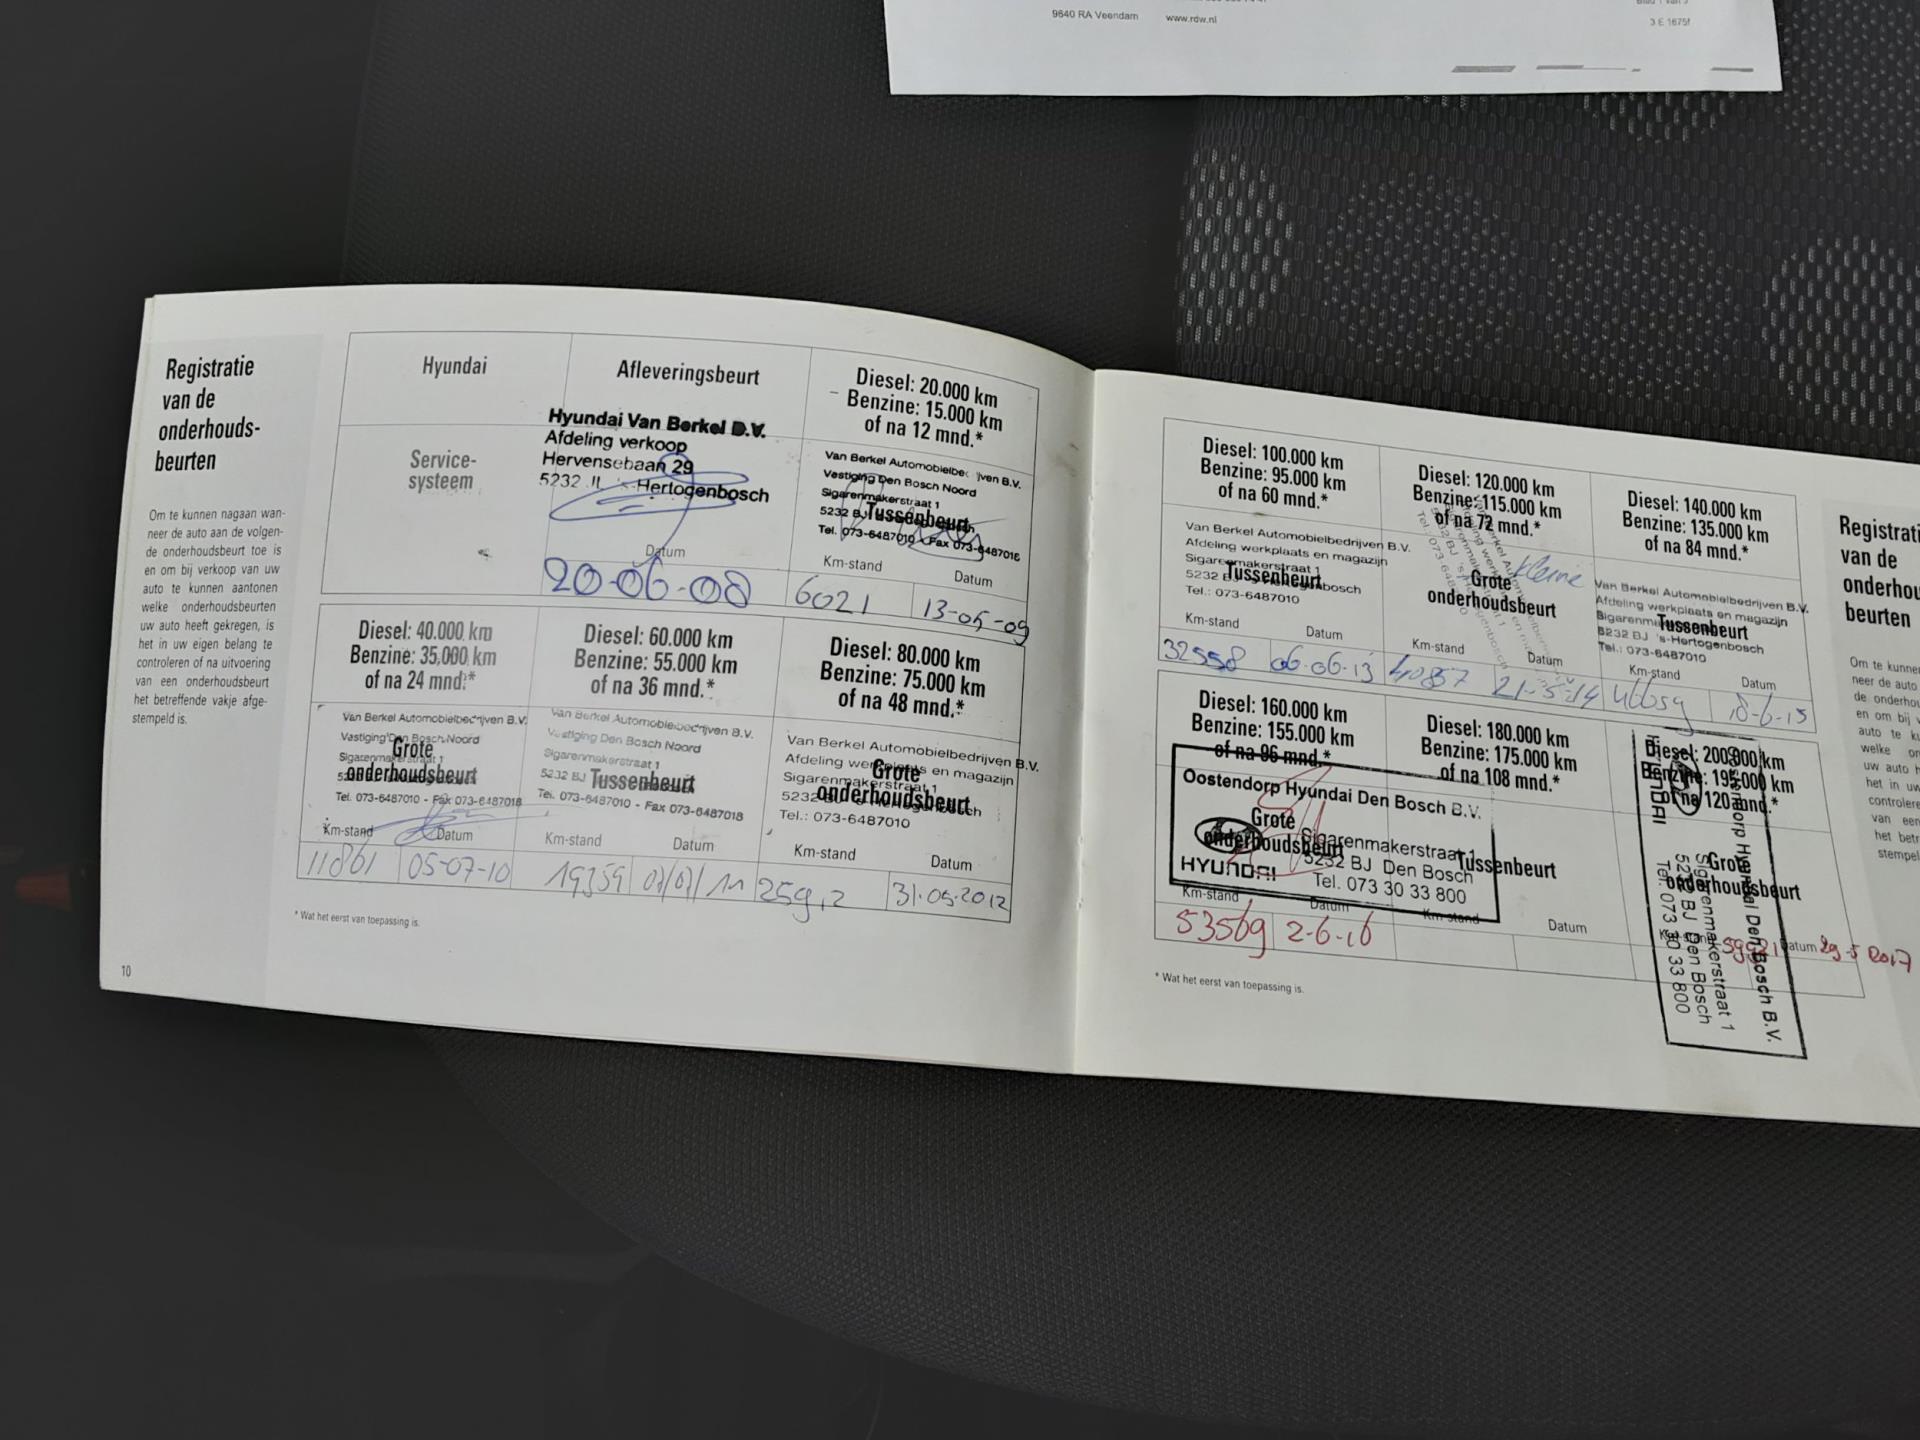 9640 RA Veendam www.rdw.nl
3 E 1675f
Registratie
van de
onderhouds-
beurten
Om te kunnen nagaan wan-
neer de auto aan de volgen-
de onderhoudsbeurt toe is
en om bij verkoop van uw
auto te kunnen aantonen
welke onderhoudsbeurten
uw auto heeft gekregen, is
het in uw eigen belang te
controleren of na uitvoering
van een onderhoudsbeurt
het betreffende vakje afge-
stempeld is.
10
Hyundai
Service-
systeem
Afleveringsbeurt
Hyundai Van Berkel B.V.
Afdeling verkoop
Hervensebaan 29
5232 's-Hertogenbosch
Datum
20-06-08
Diesel: 20.000 km
Benzine: 15.000 km
of na 12 mnd.*
Van Berkel Automobielbedrijven B.V.
Vestiging Den Bosch Noord
Sigarenmakerstraat 1
5232 BJ
Tussenbeurt
Tel. 073-6487010 - Fax 073-6487018
Km-stand Datum
6021 13-05-09
Diesel: 40.000 km
Benzine: 35.000 km
of na 24 mnd.*
Van Berkel Automobielbedrijven B.V.
Vestiging Den Bosch Noord
Sigarenmakerstraat 1
Grote
onderhoudsbeurt
Tel. 073-6487010 - Fax 073-6487018
Km-stand Datum
11861 05-07-10
Diesel: 60.000 km
Benzine: 55.000 km
of na 36 mnd.*
Van Berkel Automobielbedrijven B.V.
Vestiging Den Bosch Noord
Sigarenmakerstraat 1
5232 BJ
Tussenbeurt
Tel. 073-6487010 - Fax 073-6487018
Km-stand Datum
19359 07/07/11
Diesel: 80.000 km
Benzine: 75.000 km
of na 48 mnd.*
Van Berkel Automobielbedrijven B.V.
Afdeling werkplaats en magazijn
Sigarenmakerstraat 1
5232 BJ 's-Hertogenbosch
Grote
onderhoudsbeurt
Tel.: 073-6487010
Km-stand Datum
259,2 31.05.2012
* Wat het eerst van toepassing is.
Diesel: 100.000 km
Benzine: 95.000 km
of na 60 mnd.*
Van Berkel Automobielbedrijven B.V.
Afdeling werkplaats en magazijn
Sigarenmakerstraat 1
5232 BJ 's-Hertogenbosch
Tussenbeurt
Tel.: 073-6487010
Km-stand Datum
32558 06-06-13
Diesel: 120.000 km
Benzine: 115.000 km
of na 72 mnd.*
Grote
kleine
onderhoudsbeurt
Km-stand Datum
40857 21-5-14
Diesel: 140.000 km
Benzine: 135.000 km
of na 84 mnd.*
Van Berkel Automobielbedrijven B.V.
Afdeling werkplaats en magazijn
Sigarenmakerstraat 1
Tussenbeurt
5232 BJ 's-Hertogenbosch
Tel.: 073-6487010
Km-stand Datum
46659 18-6-15
Diesel: 160.000 km
Benzine: 155.000 km
of na 96 mnd.*
Oostendorp Hyundai Den Bosch B.V.
Grote
onderhoudsbeurt
Sigarenmakerstraat 1
5232 BJ Den Bosch
HYUNDAI Tel. 073 30 33 800
Km-stand Datum
53569 2-6-16
Diesel: 180.000 km
Benzine: 175.000 km
of na 108 mnd.*
Tussenbeurt
Km-stand Datum
Diesel: 200.000 km
Benzine: 195.000 km
of na 120 mnd.*
Oostendorp Hyundai Den Bosch B.V.
Sigarenmakerstraat 1
5232 BJ Den Bosch
HYUNDAI Tel. 073 30 33 800
Grote
onderhoudsbeurt
Datum
29-5 2017
* Wat het eerst van toepassing is.
Registrati
van de
onderhou
beurten
Om te kunnen
neer de auto
de onderhou
en om bij v
auto te ku
welke on
uw auto h
het in uw
controlere
van een
het betre
stempel